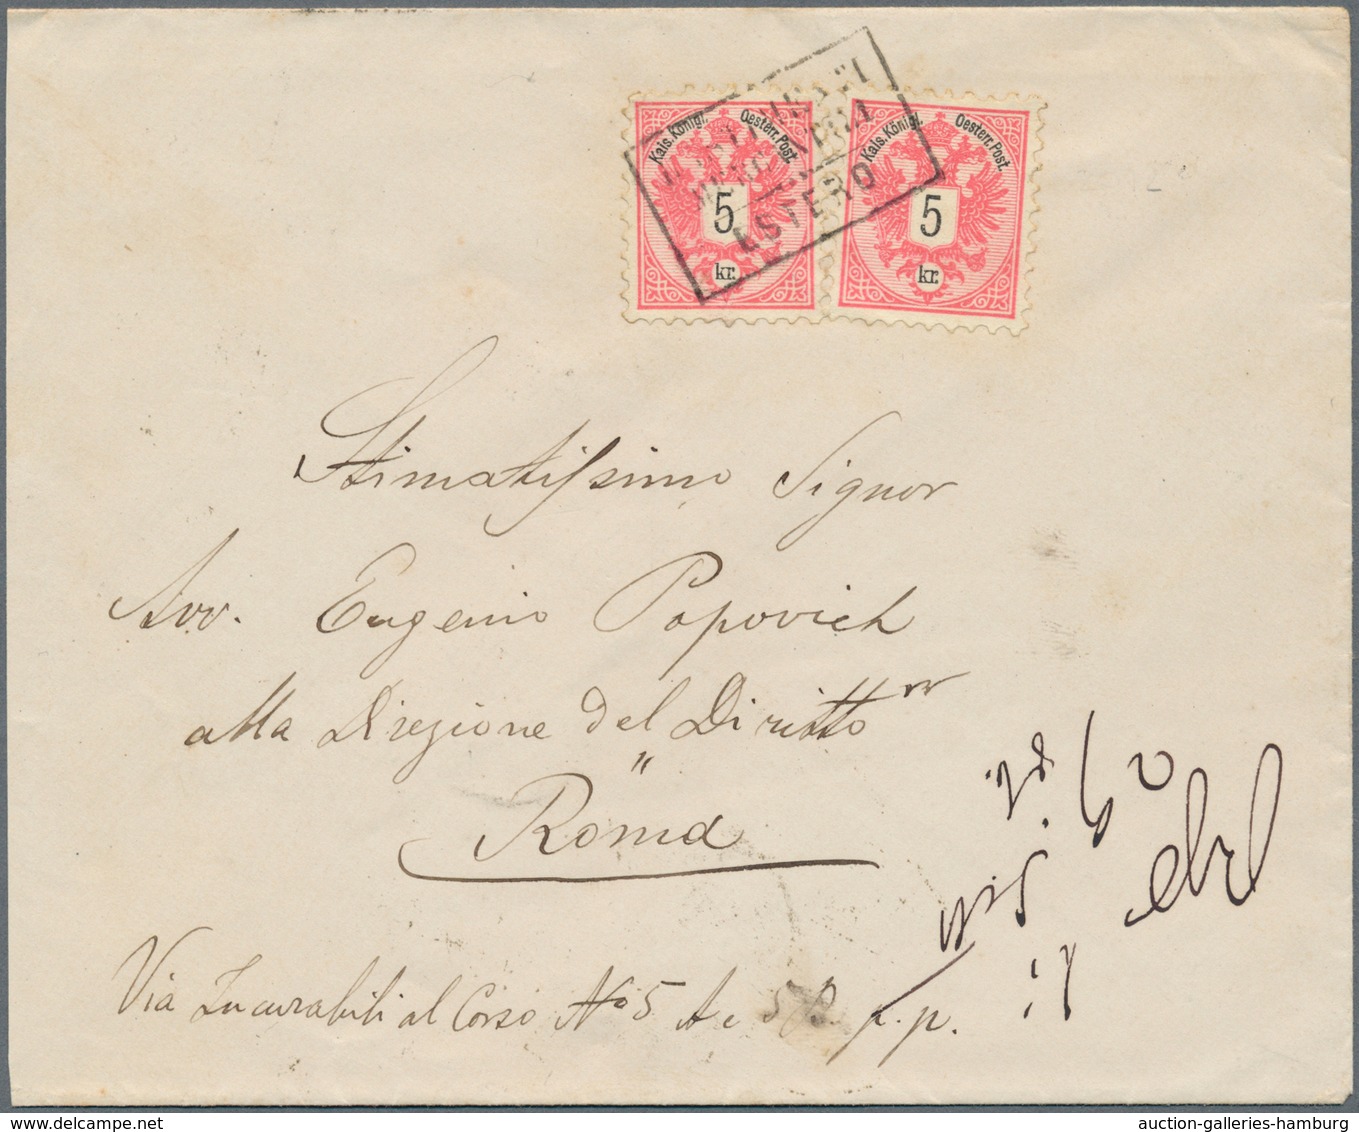 Kais. Königl. Oesterr. Post.
5
kr.
Kais. Königl. Oesterr. Post.
5
kr.
ESTERO
Stimatissimo Signor
Avv. Eugenio Popovich
alla Direzione del Diritto
"
Roma
Via Incurabili al Corso No 5 A e 5 B p.p.
auction-galleries-hamburg